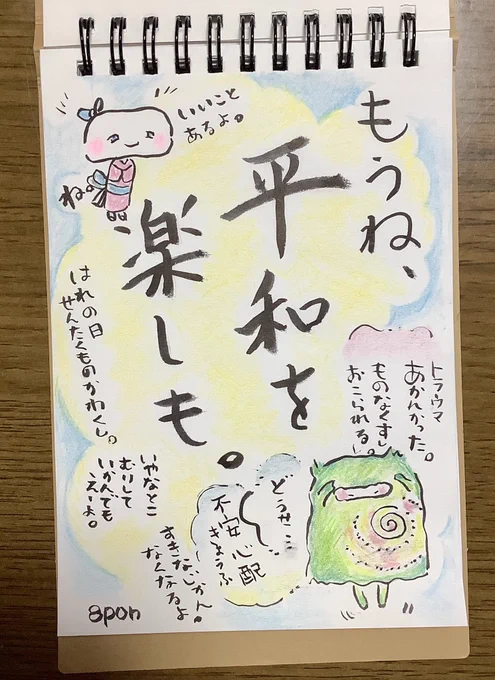 もうね、
平和を
楽しも。
いいこと
あるよ。
ね。
はれの日
せんたくものかわくし。
トラウマ
あかんかった。
ものなくすし
おこられるし。
どうせ
不安心配
きょうふ
いやなとこ
むりして
いかんでも
えーよ。
すきなじかん。
なくなるよ
8pon